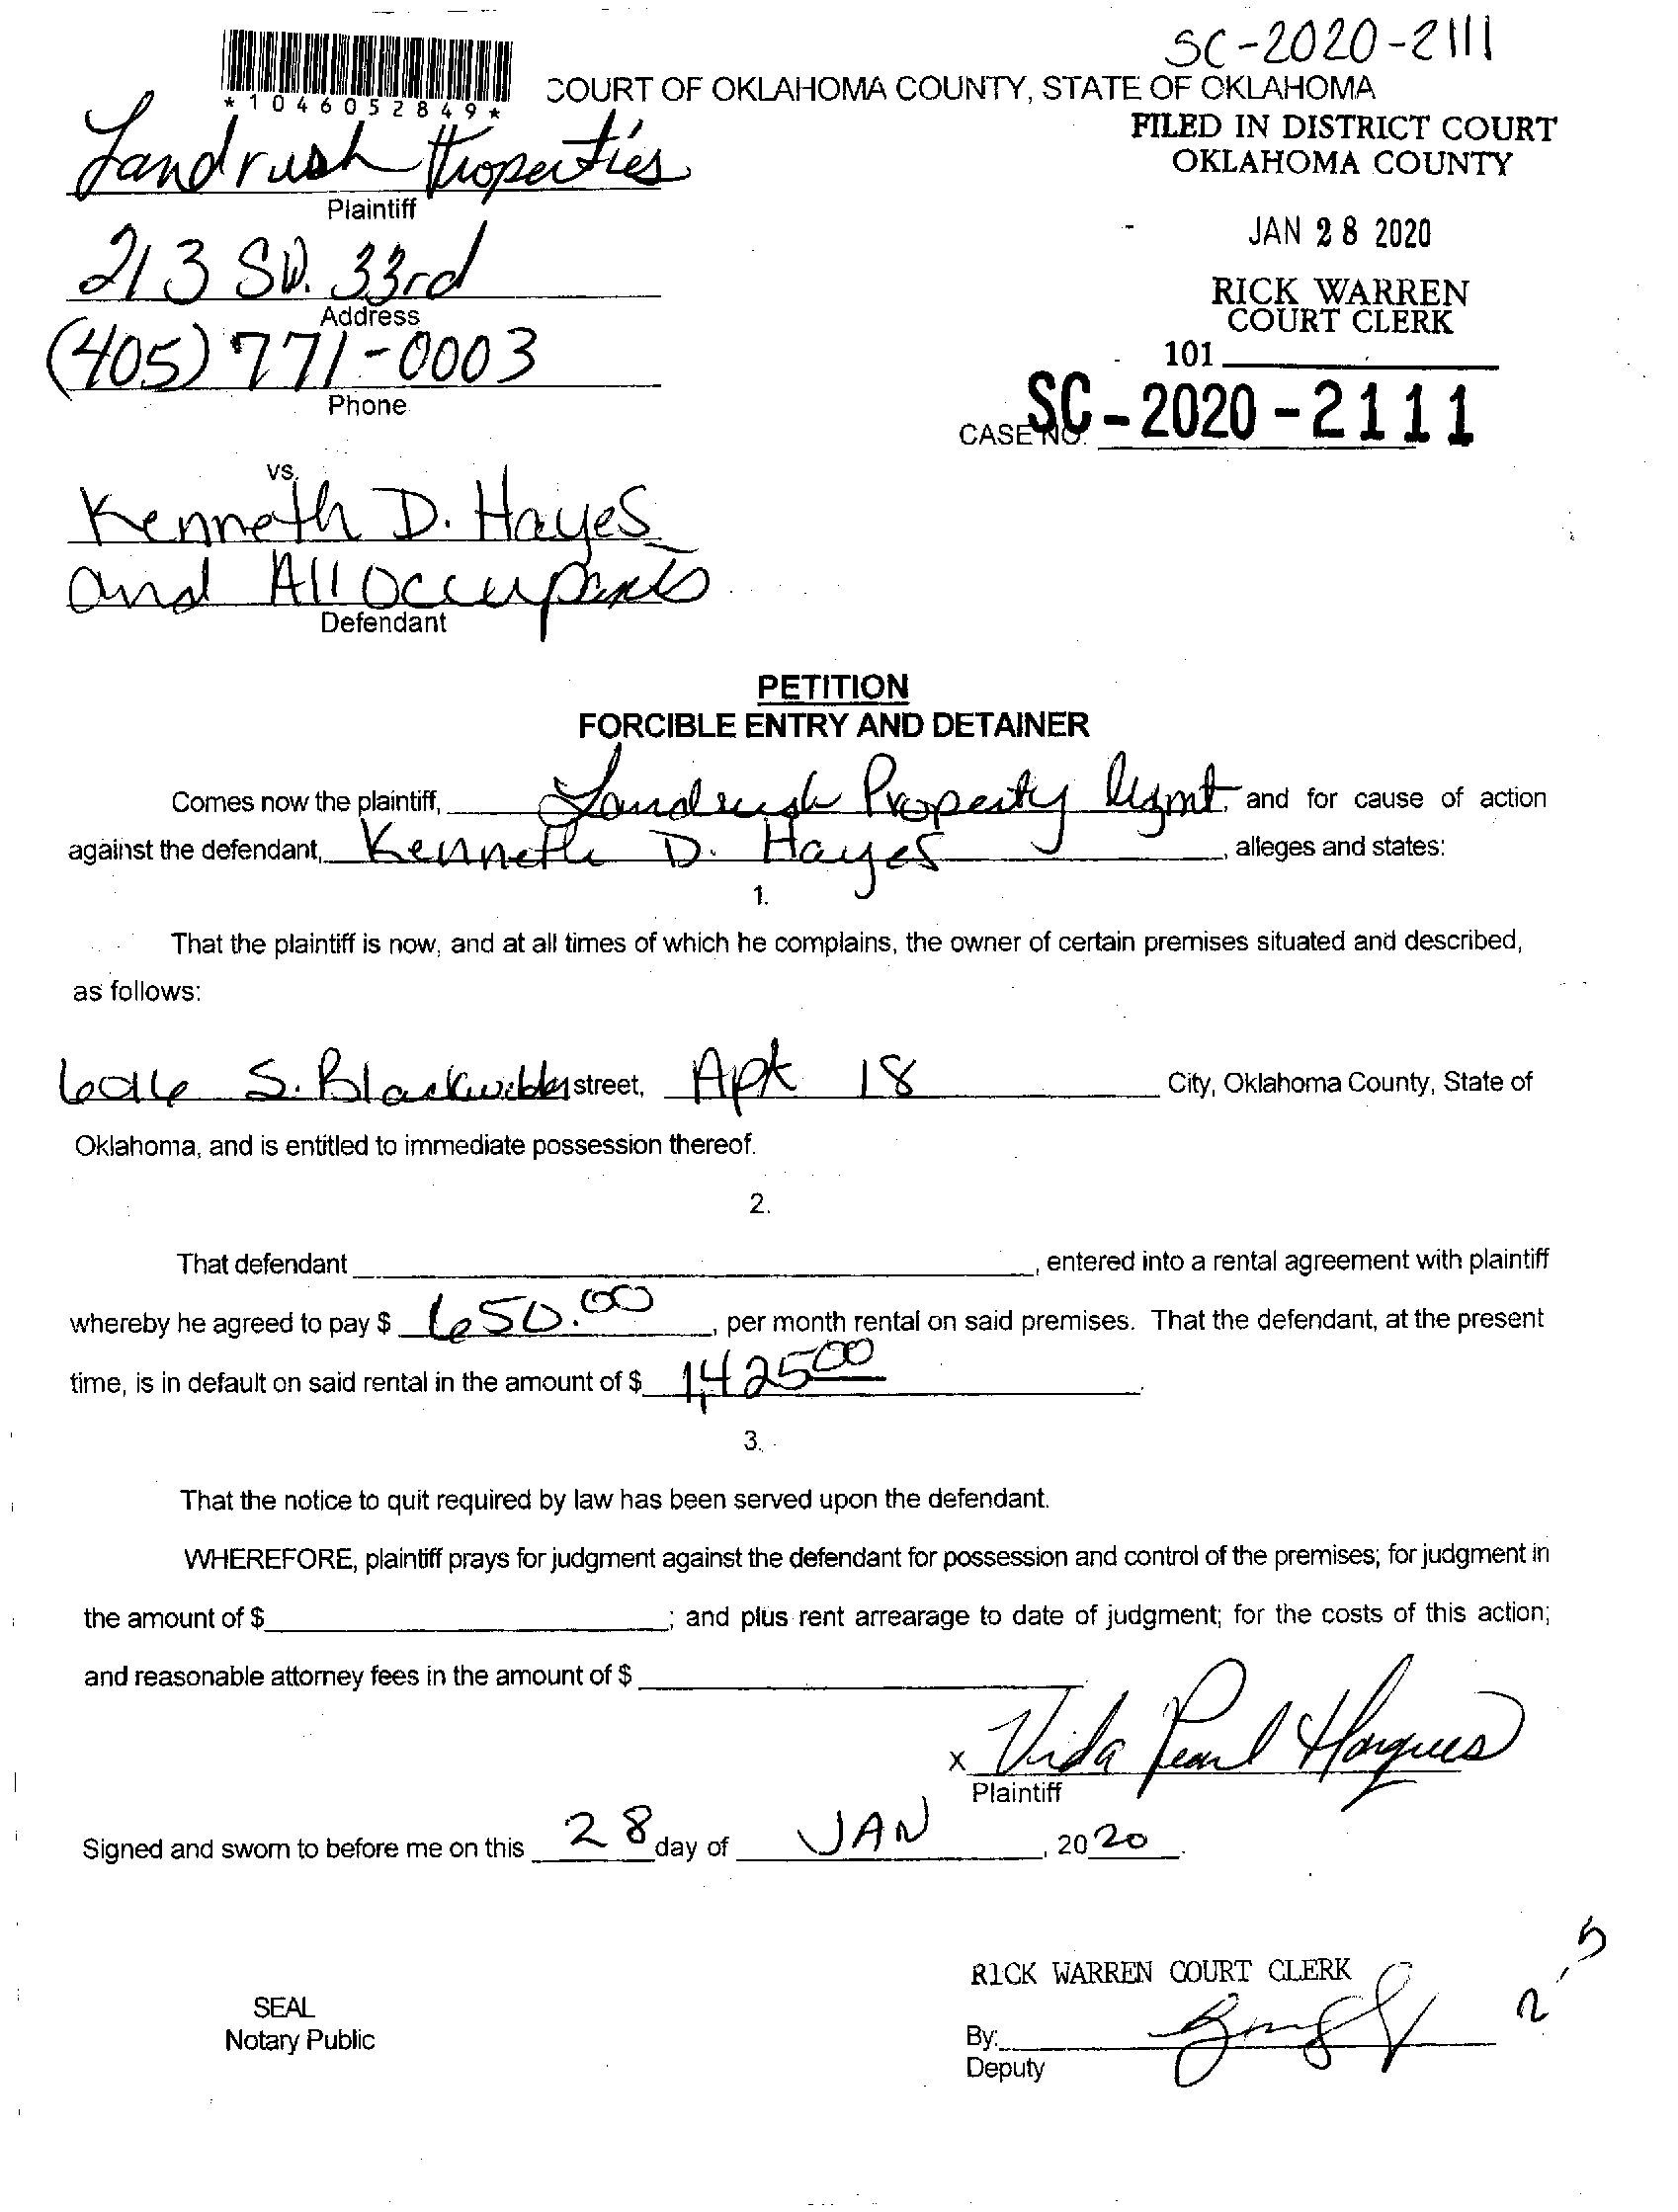 SC-2020-2111
*1046052849*
COURT OF OKLAHOMA COUNTY, STATE OF OKLAHOMA
FILED IN DISTRICT COURT
OKLAHOMA COUNTY
Landrush Properties
Plaintiff
JAN 28 2020
213 SW. 33rd
Address
RICK WARREN
COURT CLERK
(405) 771-0003
Phone
101
CASE NO. SC-2020-2111
vs.
Kenneth D. Hayes
and All Occupants
Defendant
PETITION
FORCIBLE ENTRY AND DETAINER
Comes now the plaintiff, Landrush Property Mgmt, and for cause of action
against the defendant, Kenneth D. Hayes, alleges and states:
1.
That the plaintiff is now, and at all times of which he complains, the owner of certain premises situated and described,
as follows:
S. Blackwelder street, Apt 18 City, Oklahoma County, State of
Oklahoma, and is entitled to immediate possession thereof.
2.
That defendant , entered into a rental agreement with plaintiff
whereby he agreed to pay $ 650.00, per month rental on said premises. That the defendant, at the present
time, is in default on said rental in the amount of $ 1,425 00.
3.
That the notice to quit required by law has been served upon the defendant.
WHEREFORE, plaintiff prays for judgment against the defendant for possession and control of the premises; for judgment in
the amount of $ ; and plus rent arrearage to date of judgment; for the costs of this action;
and reasonable attorney fees in the amount of $
x Vida Pearl Hargues
Plaintiff
Signed and sworn to before me on this 28 day of JAN, 2020.
RICK WARREN COURT CLERK
SEAL
Notary Public
By:
Deputy